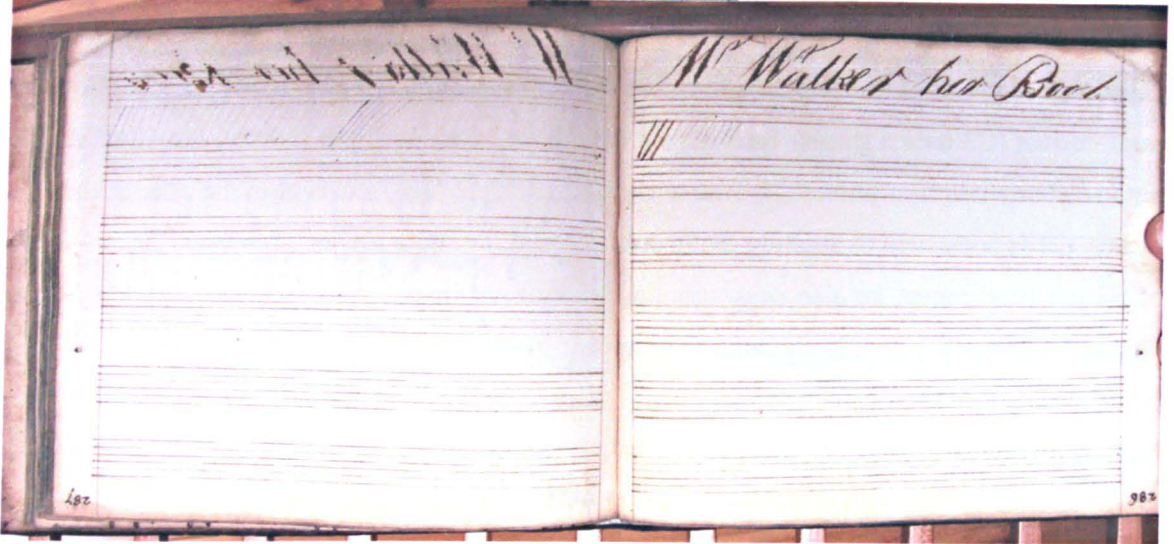 Mr Walker her Book
287
286